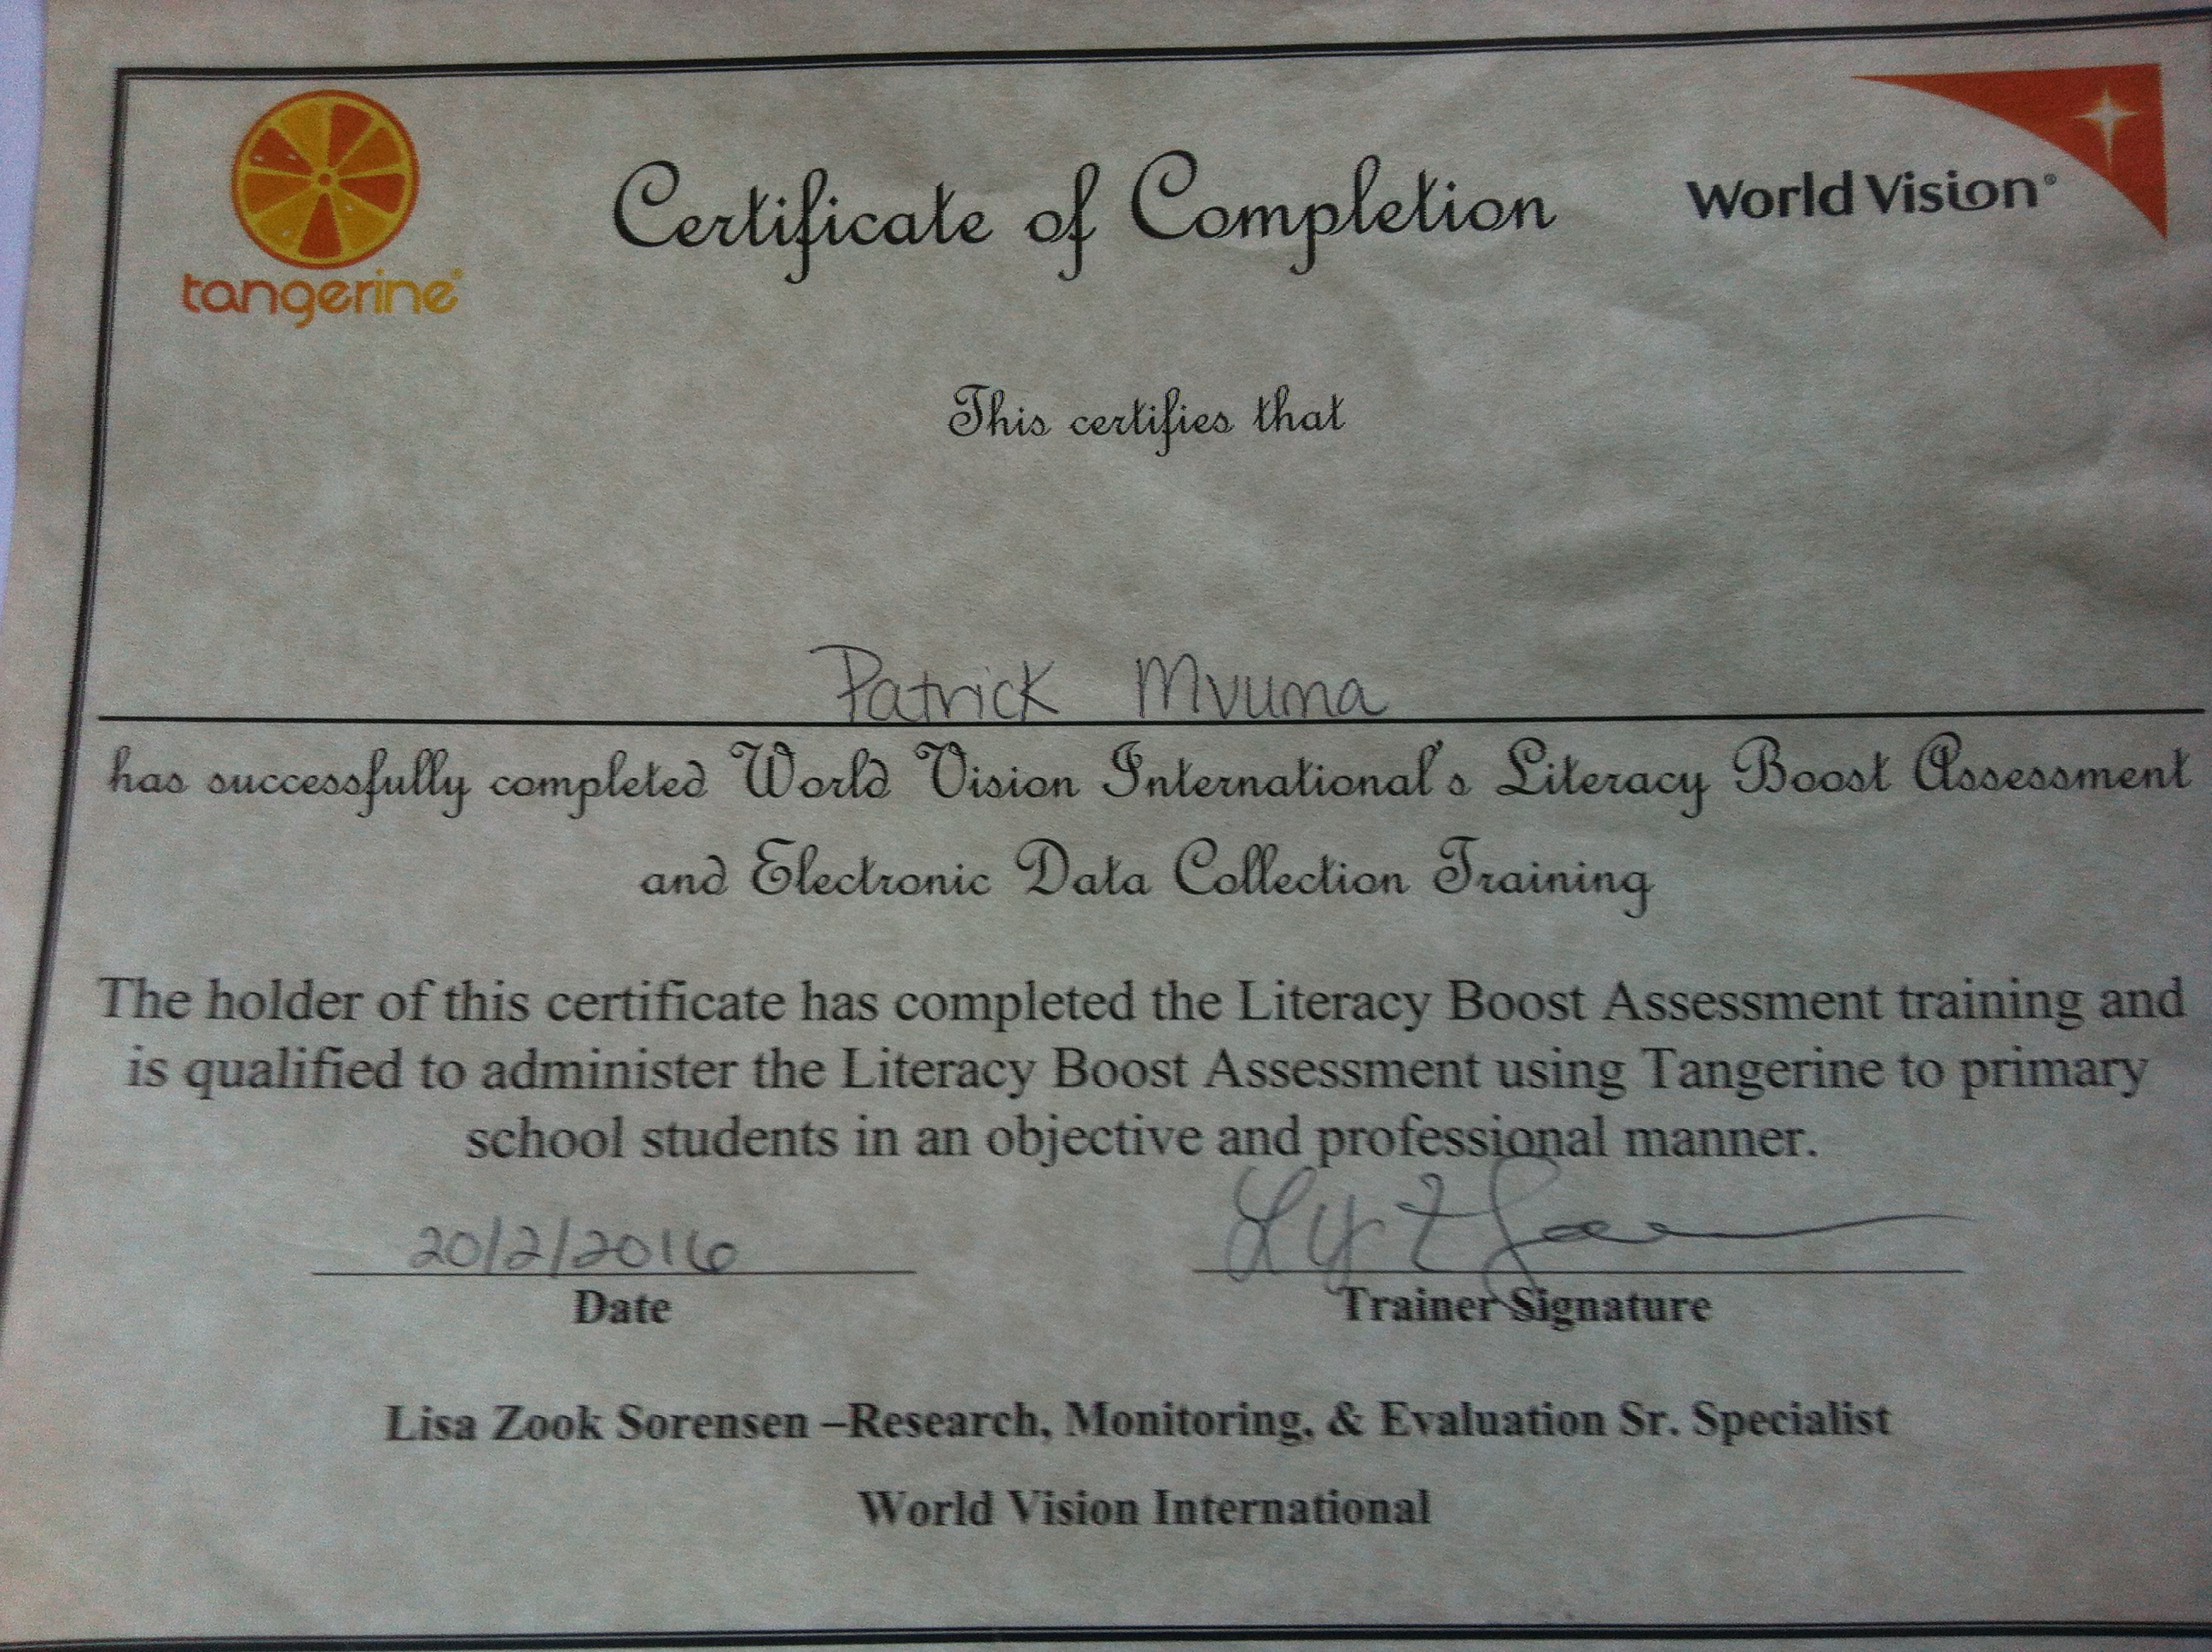 tangerine®
Certificate of Completion
World Vision®
This certifies that
Patrick Mvuma
has successfully completed World Vision International's Literacy Boost Assessment
and Electronic Data Collection Training
The holder of this certificate has completed the Literacy Boost Assessment training and
is qualified to administer the Literacy Boost Assessment using Tangerine to primary
school students in an objective and professional manner.
20/2/2016
Date
Trainer Signature
Lisa Zook Sorensen –Research, Monitoring, & Evaluation Sr. Specialist
World Vision International